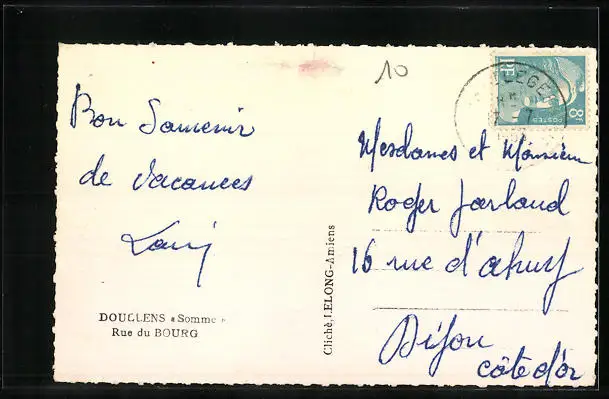 10
Bon Souvenir
de Vacances
DOULLENS « Somme »
Rue du BOURG
Cliché, LELONG-Amiens
8F
POSTES
Mesdames et Monsieur
Roger
16 rue d'ahuy
Dijon
côte d'or